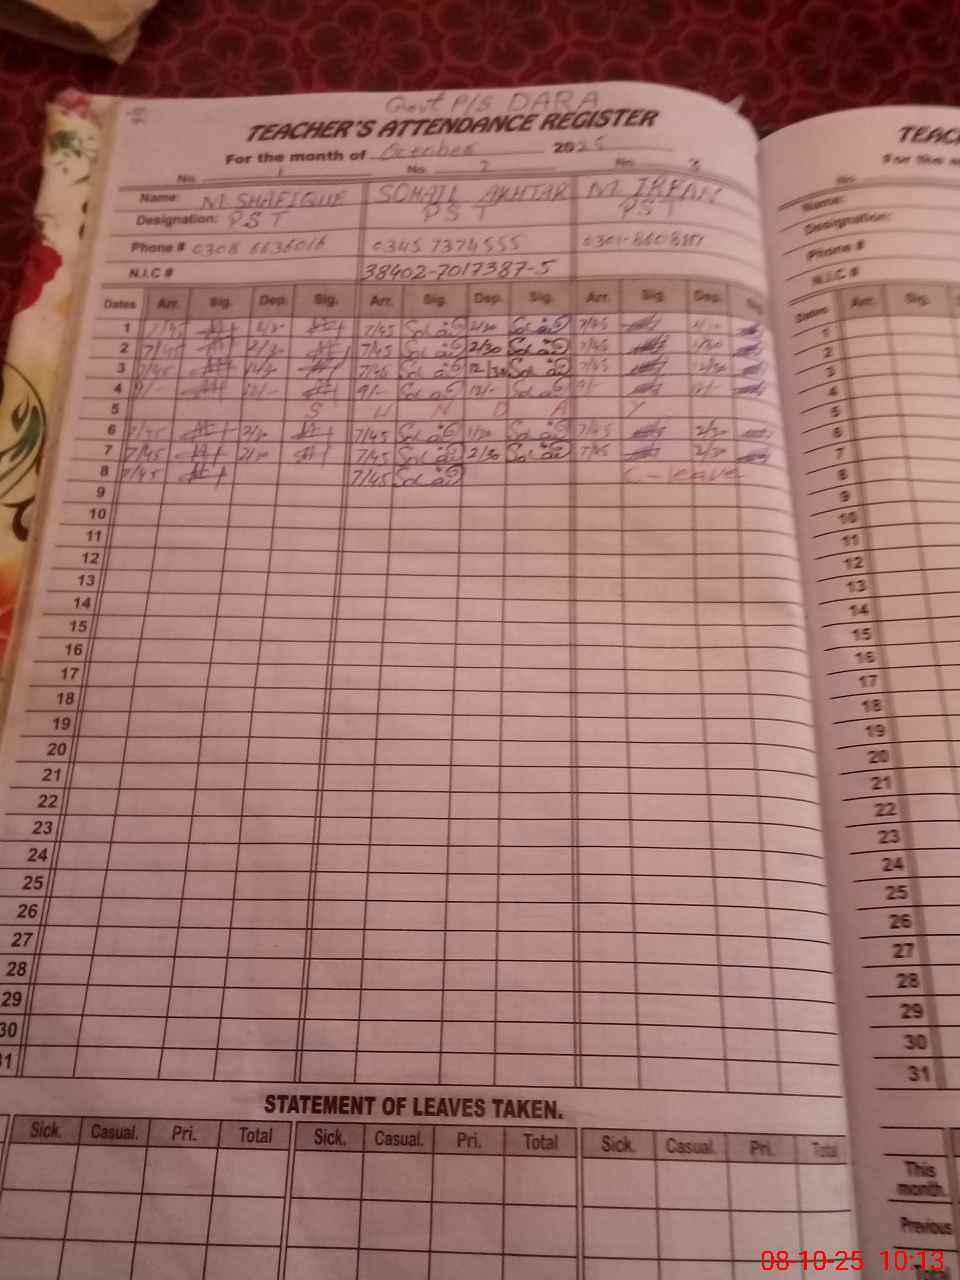 Govt P/S DARA
TEACHER'S ATTENDANCE REGISTER
For the month of October 2025
No. 1 No. 2 No. 3
Name: M. SHAFIQUE SOHAIL AKHTAR M. IRFAN
Designation: PST PST PST
Phone # 0308 6636016 0345 7374555
N.I.C # 38402-7017387-5
Dates Arr. Sig. Dep. Sig. Arr. Sig. Dep. Sig. Arr. Sig. Dep. Sig.
1 7/45 2/30 7/45 2/30 7/45
2 7/45 2/30 7/45 2/30 7/45 2/30
3 7/45 12/30 7/45 12/30 7/45 12/30
4 9/- 12/- 9/- 12/- 9/- 12/-
5 S U N D A Y
6 7/45 2/30 7/45 7/45 2/30
7 7/45 2/30 7/45 2/30 7/45 2/30
8 7/45 7/45 C-leave
9
10
11
12
13
14
15
16
17
18
19
20
21
22
23
24
25
26
27
28
29
30
31
STATEMENT OF LEAVES TAKEN.
Sick. Casual. Pri. Total Sick. Casual. Pri. Total Sick. Casual. Pri. Total
TEAC
No.
Name:
Designation:
Phone #
N.I.C #
Dates Arr. Sig.
1
2
3
4
5
6
7
8
9
10
11
12
13
14
15
16
17
18
19
20
21
22
23
24
25
26
27
28
29
30
31
This
month.
Previous
Total
08-10-25 10:13